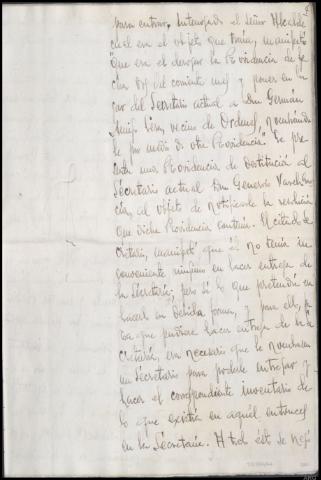 para entrar. Interrogado el Señor Alcalde
cual era el objeto que traia, manifestó
"que era el de la Providencia de fe
cha del corriente mes y poner en lu
gar del Secretario actual a Don Germán
vecino de Ordenes, nombrándo
le por medio de otra Providencia". Se pre
senta una Providencia de destitución al
Secretario actual Don Generoso
al objeto de notificarle la resolución
que dicha Providencia contiene. El citado Se
cretario, manifestó que él no tenia in
conveniente ninguno en hacer entrega de
la Secretaría; pero si lo que pretendia era
hacerla en debida forma, y para ello, pa
ra que pudiese hacer entrega de la Se
cretaría, era necesario que se nombrara
un Secretario para poderle entregar y
hacer el correspondiente inventario de
lo que existia en aquel entonces
en la Secretaría. A todo ésto se negó